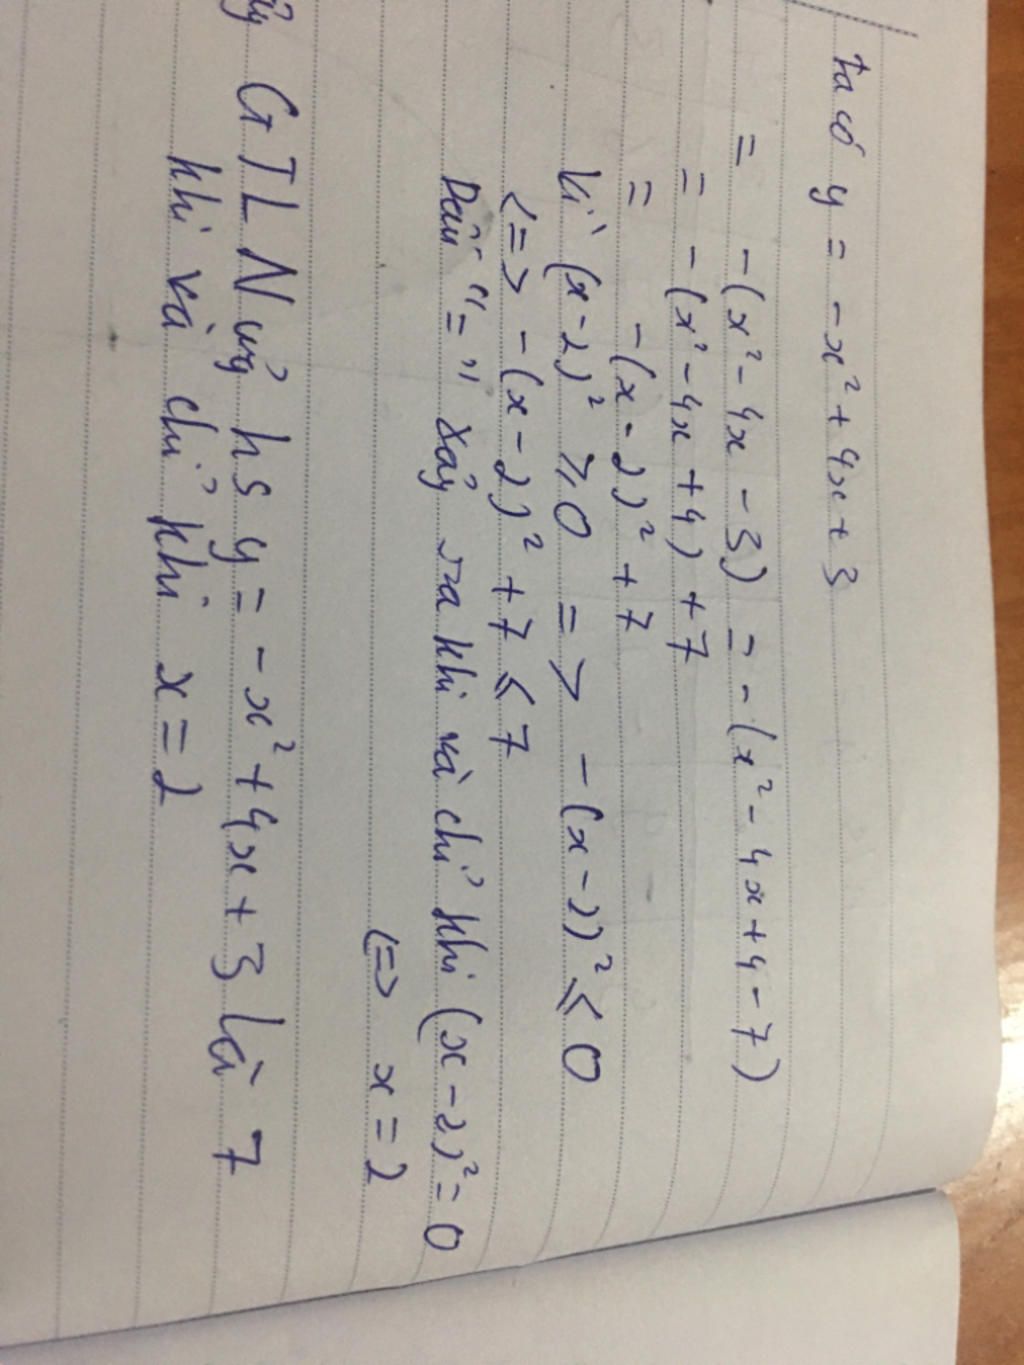 ta có y = -x² + 4x + 3
= -(x² - 4x - 3) = -(x² - 4x + 4 - 7)
= -(x² - 4x + 4) + 7
= -(x - 2)² + 7
Vì (x - 2)² ⩾ 0 => -(x - 2)² ⩽ 0
<=> -(x - 2)² + 7 ⩽ 7
Dấu "=" xảy ra khi và chỉ khi (x - 2)² = 0
<=> x = 2
GTLN của hs y = -x² + 4x + 3 là 7
khi và chỉ khi x = 2